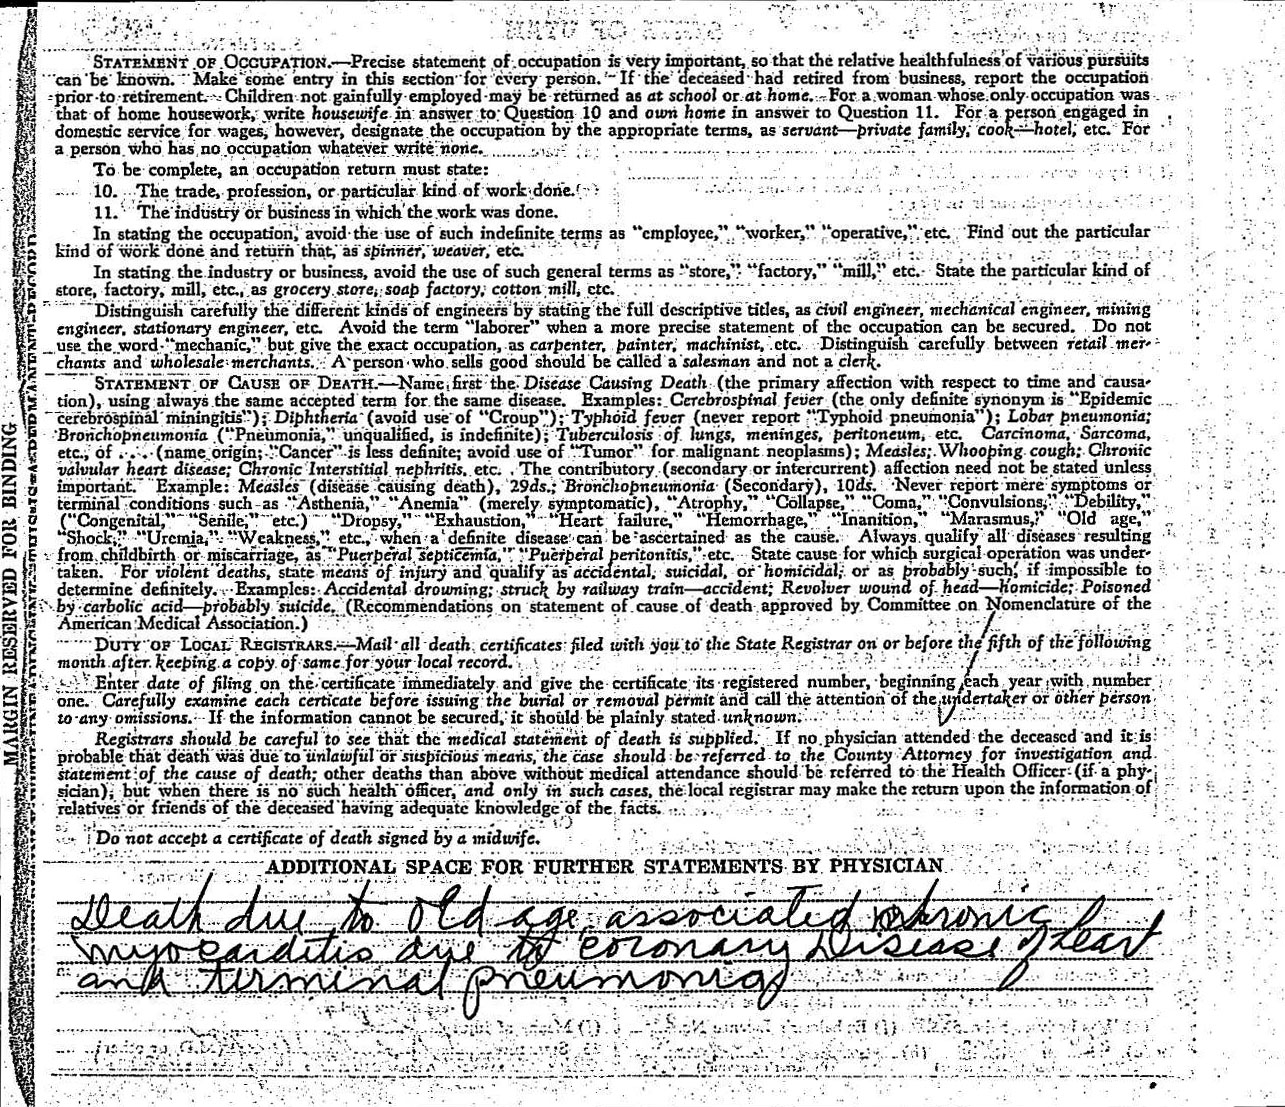 STATEMENT OF OCCUPATION.—Precise statement of occupation is very important, so that the relative healthfulness of various pursuits
can be known. Make some entry in this section for every person. If the deceased had retired from business, report the occupation
prior to retirement. Children not gainfully employed may be returned as at school or at home. For a woman whose only occupation was
that of home housework, write housewife in answer to Question 10 and own home in answer to Question 11. For a person engaged in
domestic service for wages, however, designate the occupation by the appropriate terms, as servant—private family, cook—hotel, etc. For
a person who has no occupation whatever write none.
To be complete, an occupation return must state:
10. The trade, profession, or particular kind of work done.
11. The industry or business in which the work was done.
In stating the occupation, avoid the use of such indefinite terms as “employee,” “worker,” “operative,” etc. Find out the particular
kind of work done and return that, as spinner, weaver, etc.
In stating the industry or business, avoid the use of such general terms as “store,” “factory,” “mill,” etc. State the particular kind of
store, factory, mill, etc., as grocery store, soap factory, cotton mill, etc.
Distinguish carefully the different kinds of engineers by stating the full descriptive titles, as civil engineer, mechanical engineer, mining
engineer, stationary engineer, etc. Avoid the term “laborer” when a more precise statement of the occupation can be secured. Do not
use the word “mechanic,” but give the exact occupation, as carpenter, painter, machinist, etc. Distinguish carefully between retail mer-
chants and wholesale merchants. A person who sells good should be called a salesman and not a clerk.
STATEMENT OF CAUSE OF DEATH.—Name first the Disease Causing Death (the primary affection with respect to time and causa-
tion), using always the same accepted term for the same disease. Examples: Cerebrospinal fever (the only definite synonym is “Epidemic
cerebrospinal miningitis”); Diphtheria (avoid use of “Croup”); Typhoid fever (never report “Typhoid pneumonia”); Lobar pneumonia;
Bronchopneumonia (“Pneumonia,” unqualified, is indefinite); Tuberculosis of lungs, meninges, peritoneum, etc. Carcinoma, Sarcoma,
etc., of . . . (name origin; “Cancer” is less definite; avoid use of “Tumor” for malignant neoplasms); Measles; Whooping cough; Chronic
valvular heart disease; Chronic Interstitial nephritis, etc. The contributory (secondary or intercurrent) affection need not be stated unless
important. Example: Measles (disease causing death), 29ds.; Bronchopneumonia (Secondary), 10ds. Never report mere symptoms or
terminal conditions such as “Asthenia,” “Anemia” (merely symptomatic), “Atrophy,” “Collapse,” “Coma,” “Convulsions,” “Debility,”
(“Congenital,” “Senile,” etc.) “Dropsy,” “Exhaustion,” “Heart failure,” “Hemorrhage,” “Inanition,” “Marasmus,” “Old age,”
“Shock,” “Uremia,” “Weakness,” etc., when a definite disease can be ascertained as the cause. Always qualify all diseases resulting
from childbirth or miscarriage, as “Puerperal septicemia,” “Puerperal peritonitis,” etc. State cause for which surgical operation was under-
taken. For violent deaths, state means of injury and qualify as accidental, suicidal, or homicidal, or as probably such, if impossible to
determine definitely. Examples: Accidental drowning; struck by railway train—accident; Revolver wound of head—homicide; Poisoned
by carbolic acid—probably suicide. (Recommendations on statement of cause of death approved by Committee on Nomenclature of the
American Medical Association.)
DUTY OF LOCAL REGISTRARS.—Mail all death certificates filed with you to the State Registrar on or before the fifth of the following
month after keeping a copy of same for your local record.
Enter date of filing on the certificate immediately and give the certificate its registered number, beginning each year with number
one. Carefully examine each certicate before issuing the burial or removal permit and call the attention of the undertaker or other person
to any omissions. If the information cannot be secured, it should be plainly stated unknown.
Registrars should be careful to see that the medical statement of death is supplied. If no physician attended the deceased and it is
probable that death was due to unlawful or suspicious means, the case should be referred to the County Attorney for investigation and
statement of the cause of death; other deaths than above without medical attendance should be referred to the Health Officer (if a phy-
sician), but when there is no such health officer, and only in such cases, the local registrar may make the return upon the information of
relatives or friends of the deceased having adequate knowledge of the facts.
Do not accept a certificate of death signed by a midwife.
ADDITIONAL SPACE FOR FURTHER STATEMENTS BY PHYSICIAN
Death due to Old age associated chronic
myocarditis due to coronary Disease of heart
and terminal pneumonia
MARGIN RESERVED FOR BINDING